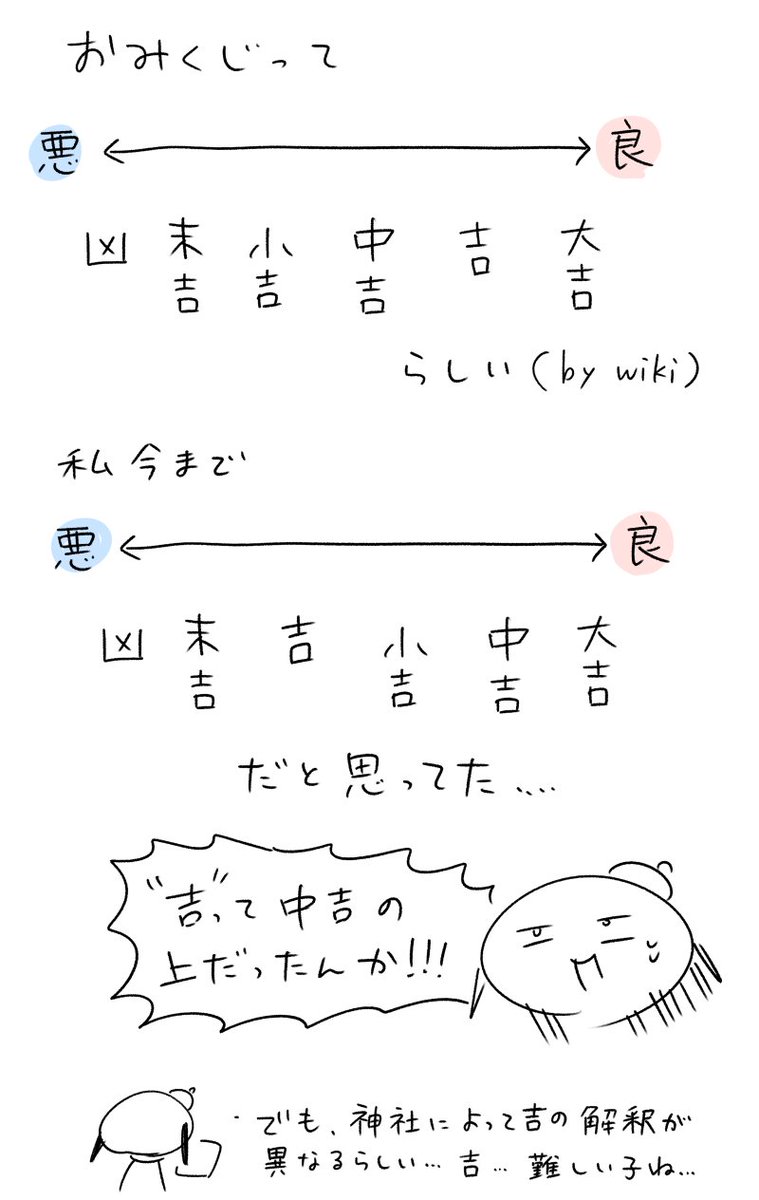 おみくじって
悪 良
凶 末吉 小吉 中吉 吉 大吉
らしい(by wiki)
私今まで
悪 良
凶 末吉 吉 小吉 中吉 大吉
だと思ってた....
"吉"って中吉の
上だったんか!!!
でも、神社によって吉の解釈が
異なるらしい...吉...難しい子ね...